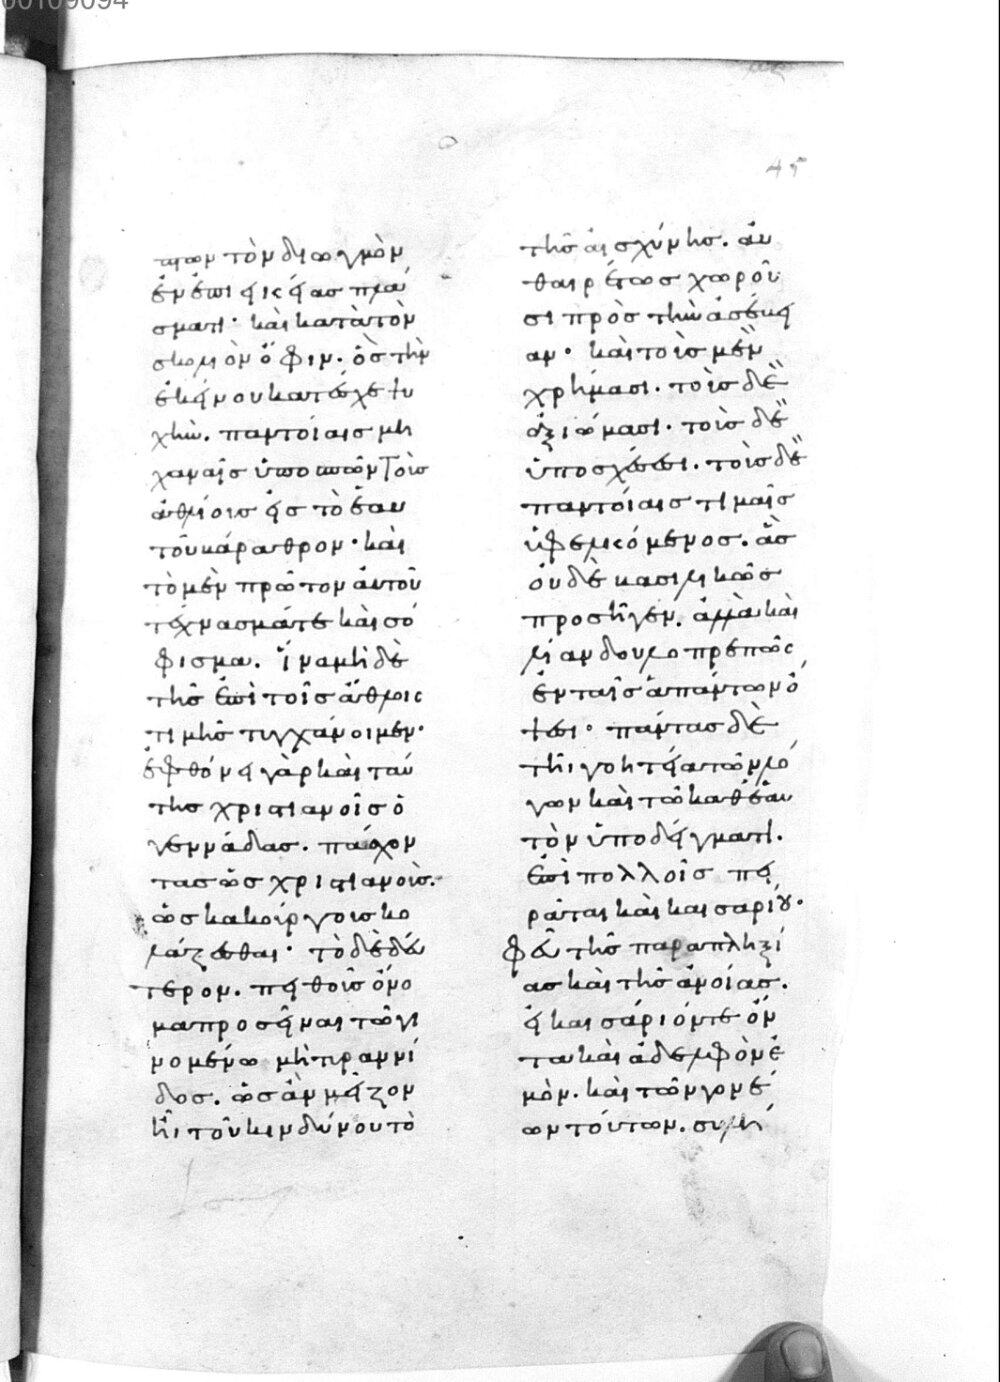 00109094
45
τιων τὸν διωγμὸν
ἐν ἐπιεικείας πλά
σματι· καὶ κατὰ τὸν
σκολιὸν ὄφιν. ὃς τὴν
ἐκείνου κατεῖχε ψυ
χὴν. παντοίαις μη
χαναῖς ὑποσπῶν τοὺς
ἀθλίους εἰς τὸ ἑαυ
τοῦ βάραθρον· καὶ
τὸ μὲν πρῶτον αὐτοῦ
τέχνασμά τε καὶ σό
φισμα. ἵνα μὴ δὲ
τῆς ἐπὶ τοῖς ἄθλοις
τιμῆς τυγχάνοιμεν·
ἐφθόνει γὰρ καὶ ταύ
της χριστιανοῖς ὁ
γεννάδας. πάσχον
τας ὡς χριστιανοὺς.
ὡς κακούργους κο
λάζεσθαι· τὸ δὲ δεύ
τερον. πειθοῦς ὄνο
μα προσεῖναι τῷ γι
νομένω μὴ τυραννί
δος. ὡς ἂν μεῖζον
ᾖ τοῦ κινδύνου τὸ
τῆς αἰσχύνης. αὐ
θαιρέτως χωροῦ
σι πρὸς τὴν ἀσέβει
αν· καὶ τοῖς μὲν
χρήμασι. τοῖς δὲ
ἀξιώμασι· τοῖς δὲ
ὑποσχέσεσι. τοῖς δὲ
παντοίαις τιμαῖς
ὑφελκόμενος. ἃς
οὐδὲ βασιλικῶς
προσῆγεν. ἀλλὰ καὶ
λίαν δουλοπρεπῶς
ἐν ταῖς ἁπάντων ὄ
ψεσι· πάντας δὲ
τῆι γοητεία τῶν λό
γων καὶ τῶ καθ' ἑαυ
τὸν ὑποδείγματι.
ἐπὶ πολλοῖς πει
ρᾶται καὶ καισαρίου·
φεῦ τῆς παραπληξί
ας καὶ τῆς ἀνοίας.
εἰ καισάριόν τε ὄν
τα καὶ ἀδελφὸν ἐ
μὸν. καὶ τῶν γονέ
ων τούτων. συλή